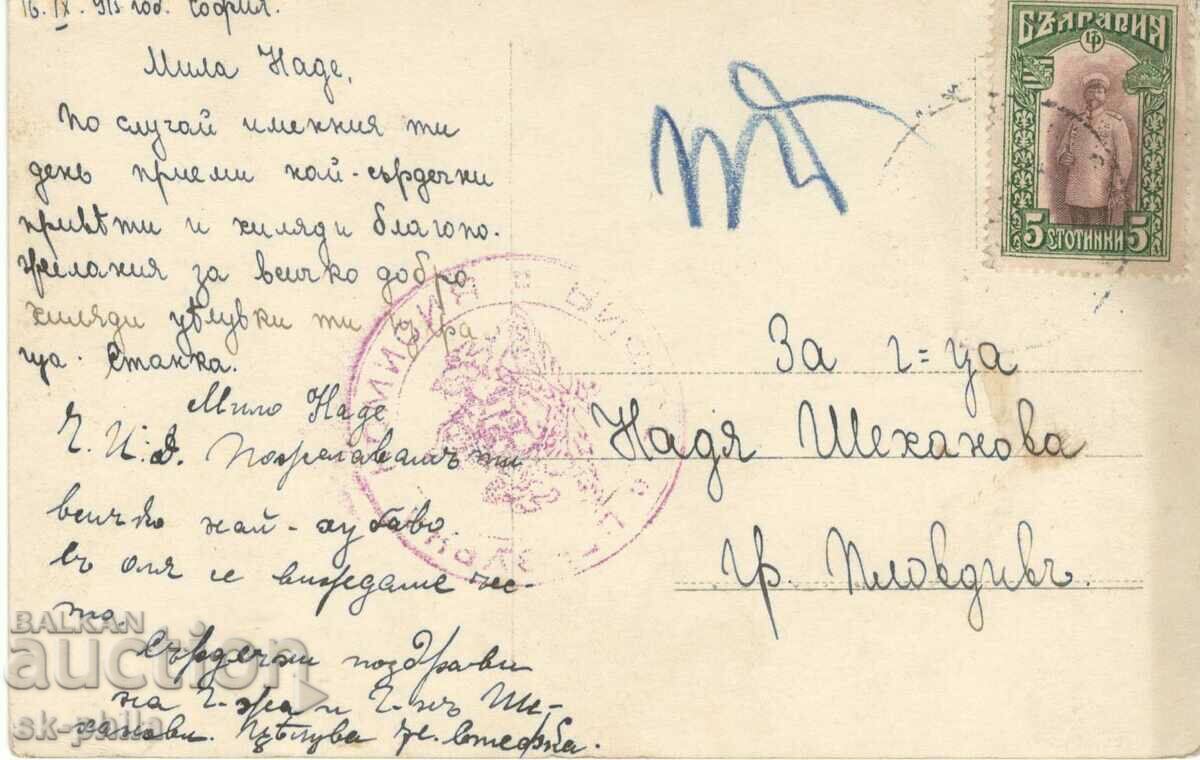 16.IX.915 год. София.
Мила Наде,
По случай именния ти
день приеми най-сърдечни
привѣти и хиляди благопо-
желания за всичко добро
хиляди цѣлувки ти
Станка.
Мило Наде
Ч. И. Д. Пожелавамъ ти
всичко най-хубаво.
съ Оля се виждаме че-
сто.
Сърдечни поздрави
на Г-жа и Г-нъ Ше-
ханови. Цѣлува те
БЪЛГАРИЯ
5 СТОТИНКИ 5
За г=ца
Надя Шеханова
гр. Пловдивъ.
BALKAN
auction
sk-phila